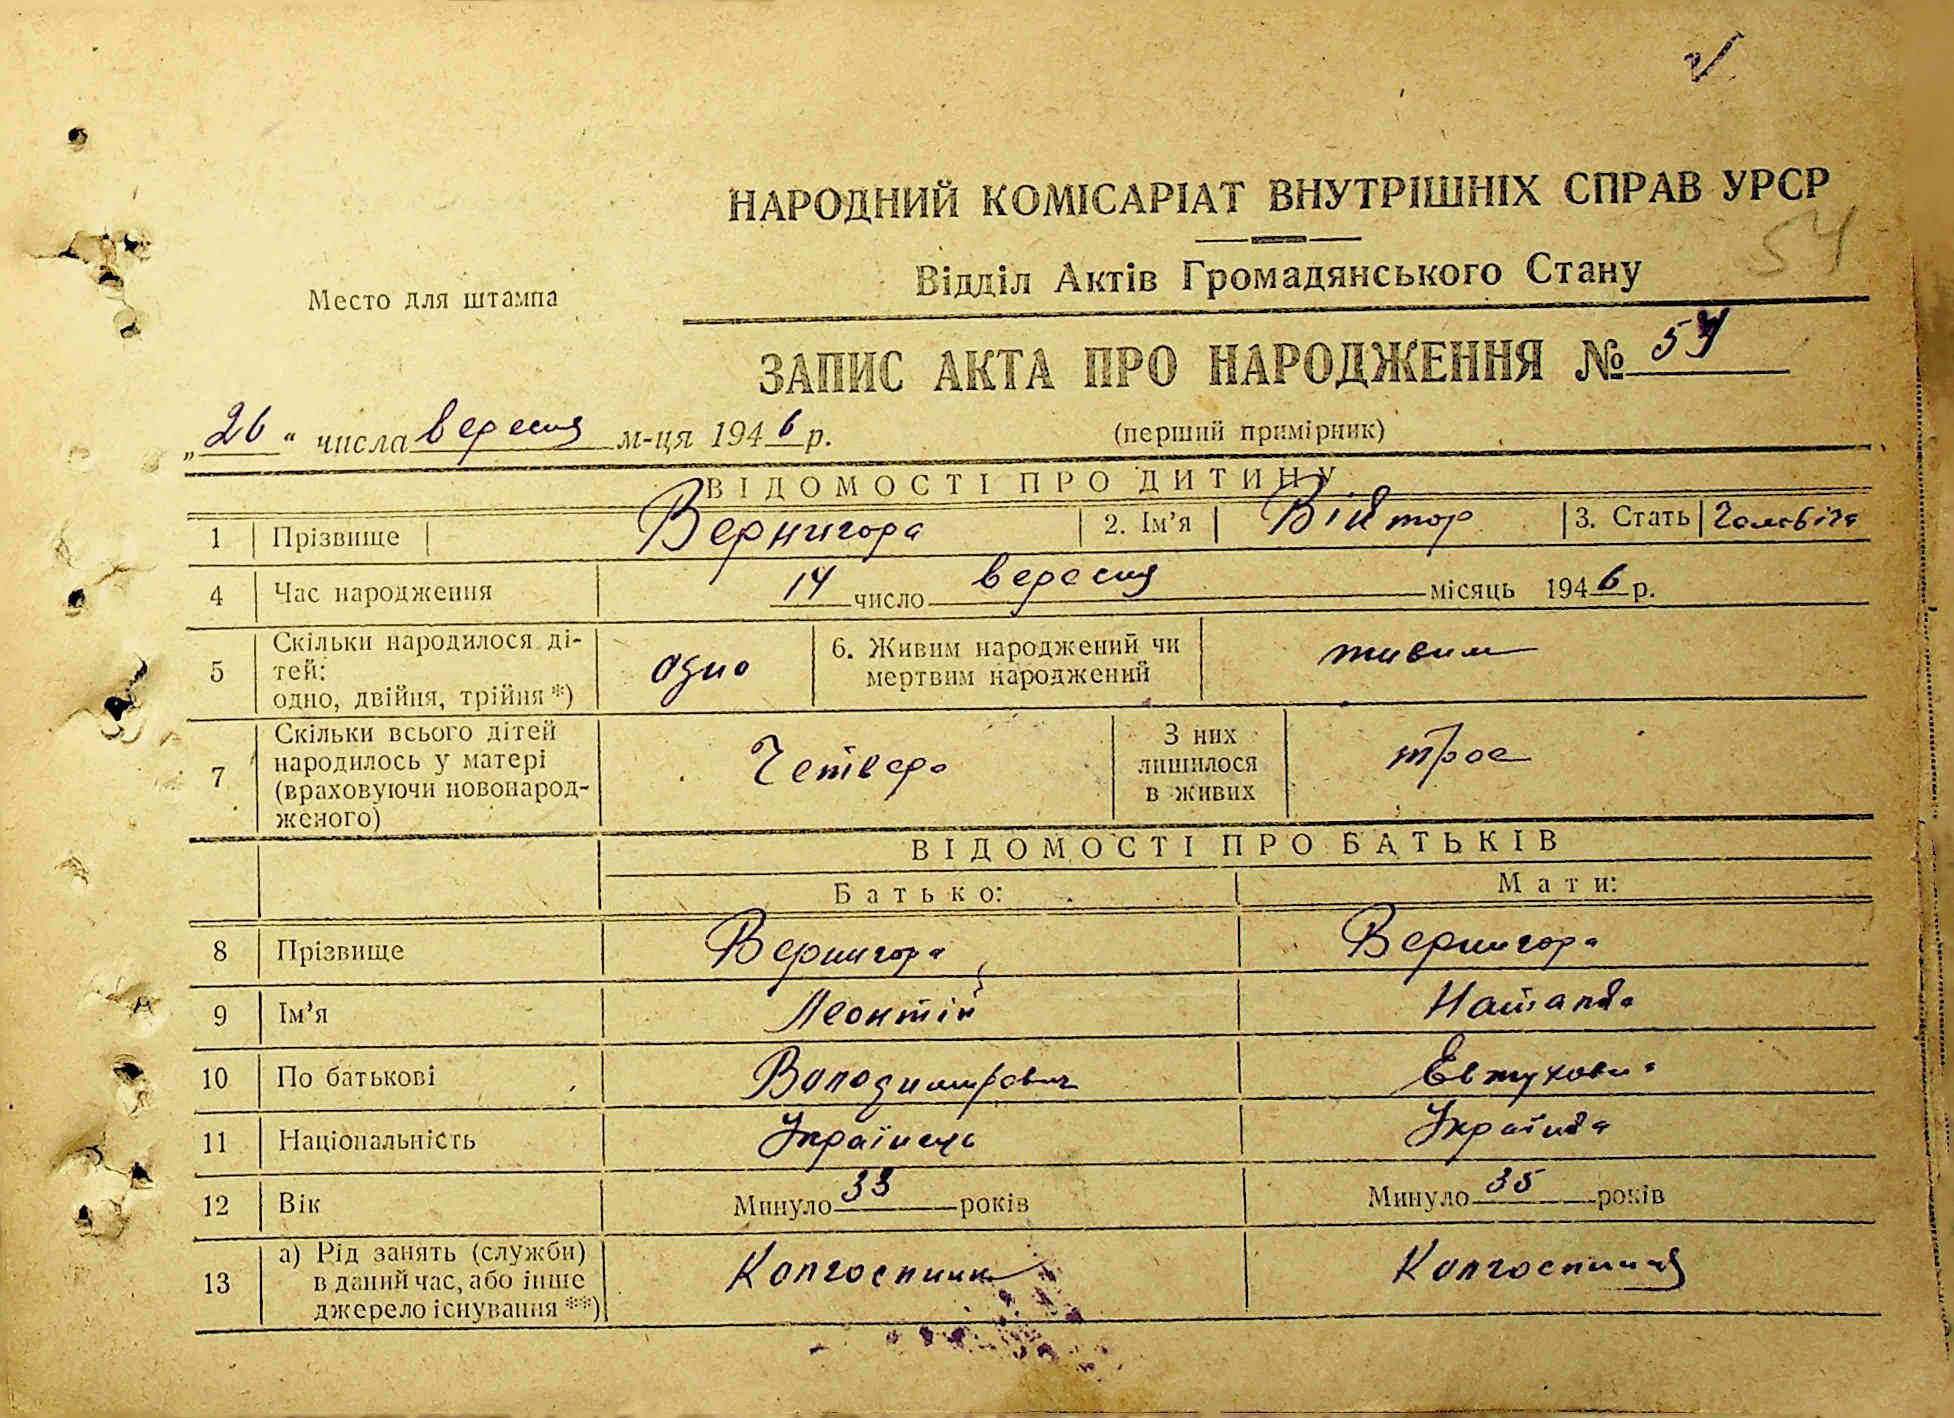 НАРОДНИЙ КОМІСАРІАТ ВНУТРІШНІХ СПРАВ УРСР
54
Відділ Актів Громадянського Стану
Место для штампа
ЗАПИС АКТА ПРО НАРОДЖЕННЯ № 54
„26“ числа вересня м-ця 1946 р. (перший примірник)
ВІДОМОСТІ ПРО ДИТИНУ
1 Прізвище Вернигора 2. Ім’я Віктор 3. Стать
4 Час народження 14 число вересня місяць 1946 р.
5 Скільки народилося ді-
тей:
одно, двійня, трійня *) одно 6. Живим народжений чи
мертвим народжений живим
7 Скільки всього дітей
народилось у матері
(враховуючи новонарод-
женого) Четверо З них
лишилося
в живих троє
ВІДОМОСТІ ПРО БАТЬКІВ
Батько: Мати:
8 Прізвище Вернигора Вернигора
9 Ім’я Леонтій Наталка
10 По батькові Володимирович Евтуховна
11 Національність Українець Українка
12 Вік Минуло 33 років Минуло 35 років
13 а) Рід занять (служби)
в даний час, або інше
джерело існування **) Колгоспник Колгоспниця